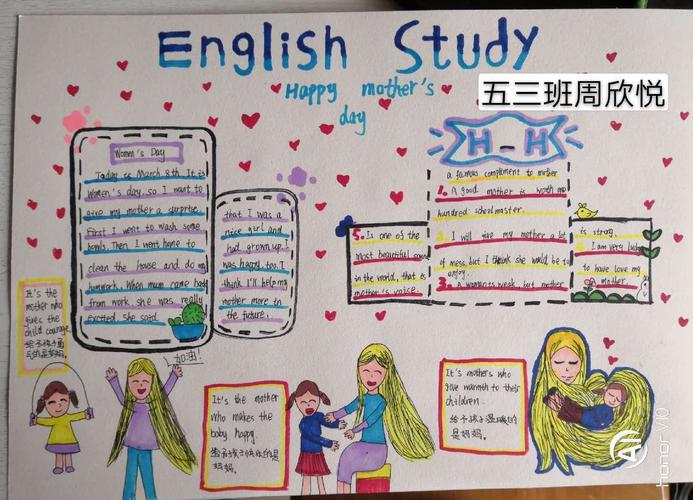 English Study
Happy mother's
day
五三班周欣悦
Women's Day
Today is March 8th. It is
Women's day, so I want to
give my mother a surprise.
First I went to wash some
bowls. Then I went home to
clean the house and do my
homework. When mum came back
from work, she was really
excited. She said
that I was a
nice girl and
had grown up. I
was happy, too. I
think I'll help my
mother more in
the future.
H-H
a famous compliment to mother
1. A good mother is worth
hundred schoolmaster.
2. I will my mother a lot
of mess, but I think she would be to
enjoy.
3. A woman is weak, but mother
is strong.
4. I am very lucky
to have love my
mother.
5. Is one of the
most beautiful sound
in the world, that is
mother's voice.
It's the
mother who
gives the
child courage
给予孩子勇
气的是妈妈。
加油!
It's the mother
who makes the
baby happy.
给予孩子快乐的是
妈妈。
It's mothers who
give warmth to their
children.
给予孩子温暖的
是妈妈。
honor V10